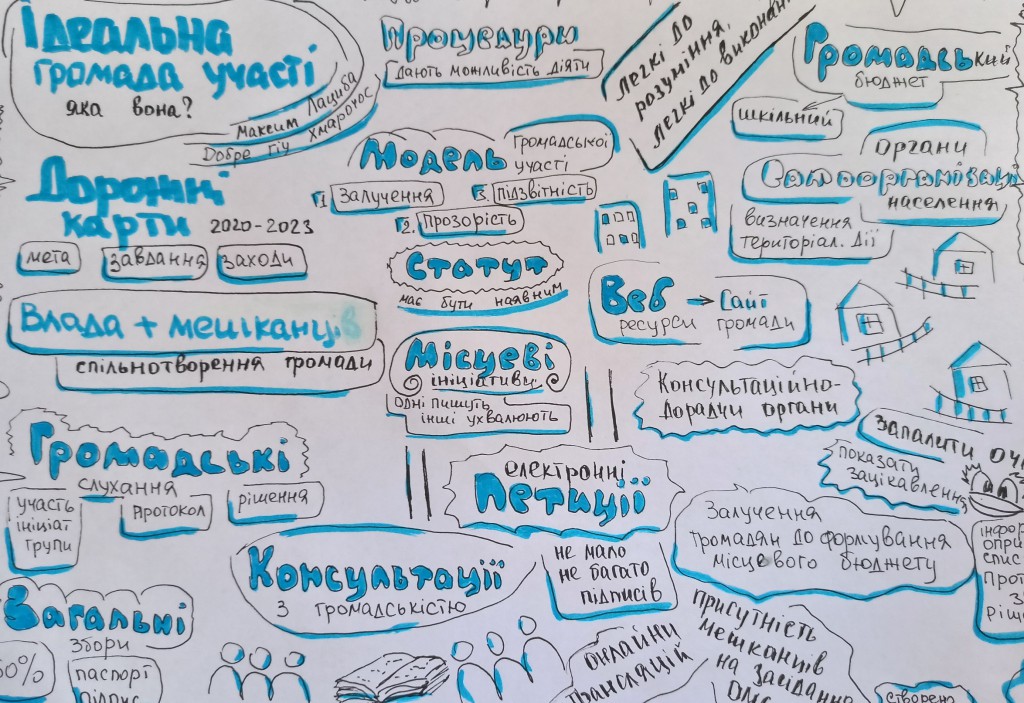 Ідеальна
громада участі
яка вона?
Максим Лациба
Добре
Хмарочос
Процедури
дають можливість діяти
Легкі до
розуміння,
легкі до
Громадський
бюджет
шкільний
Модель
громадської
участі
1. Залучення
3. підзвітність
2. прозорість
Органи
Самоорганізації
населення
визначення
територіал. дії
Дорожні
карти 2020-2023
мета
завдання
заходи
Статут
має бути наявним
Веб → Сайт
ресурси громади
Влада + мешканців
спільнотворення громади
Місцеві
ініціативи
одні пишуть
інші ухвалюють
Консультаційно-
дорадчи органи
Запалити
показати
зацікавлення
Громадські
слухання
участь
ініціат
групи
протокол
рішення
електронні
Петиції
не мало
не багато
підписів
Залучення
громадян до формування
місцевого бюджету
Консультації
з громадськістю
Загальні
збори
паспорт
присутність
мешканців
на засідання
онлайн
трансляцій
створено